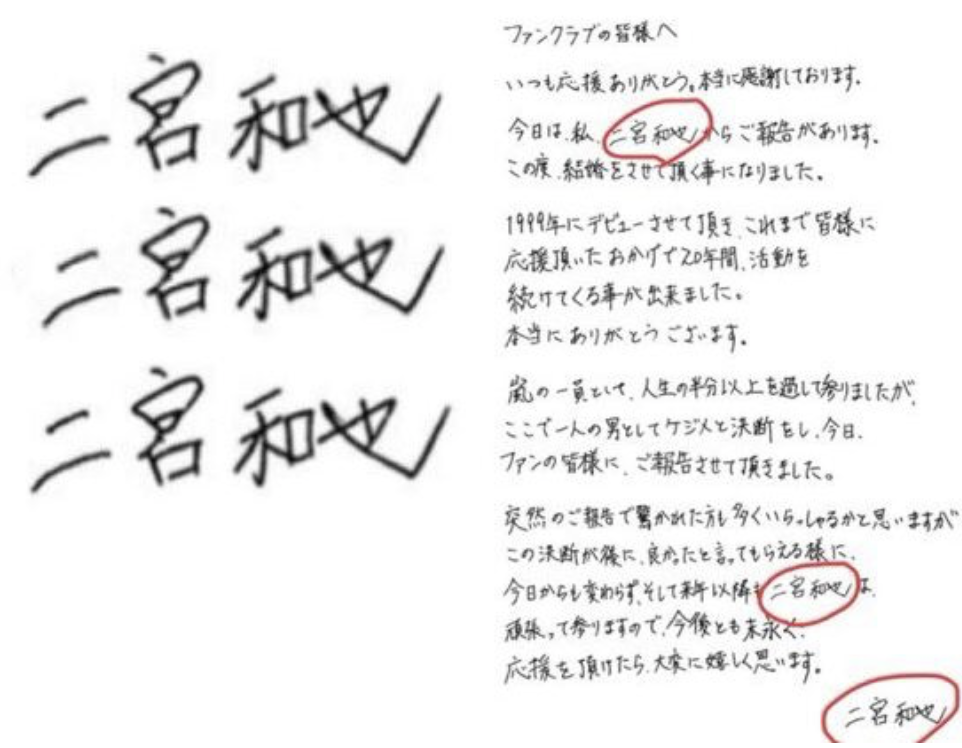 二宮和也
二宮和也
二宮和也
ファンクラブの皆様へ
いつも応援ありがとう。本当に感謝しております。
今日は、私、二宮和也からご報告があります。
この度、結婚をさせて頂く事になりました。
1999年にデビューさせて頂き、これまで皆様に
応援頂いたおかげで20年間、活動を
続けてくる事が出来ました。
本当にありがとうございます。
嵐の一員として、人生の半分以上を過して参りましたが、
ここで一人の男としてケジメと決断をし、今日、
ファンの皆様に、ご報告させて頂きました。
突然のご報告で驚かれた方も多くいらっしゃるかと思いますが
この決断が後に、良かったと言ってもらえる様に、
今日からも変わらず、そして来年以降も二宮和也は、
頑張って参りますので、今後とも末永く、
応援を頂けたら、大変に嬉しく思います。
二宮和也